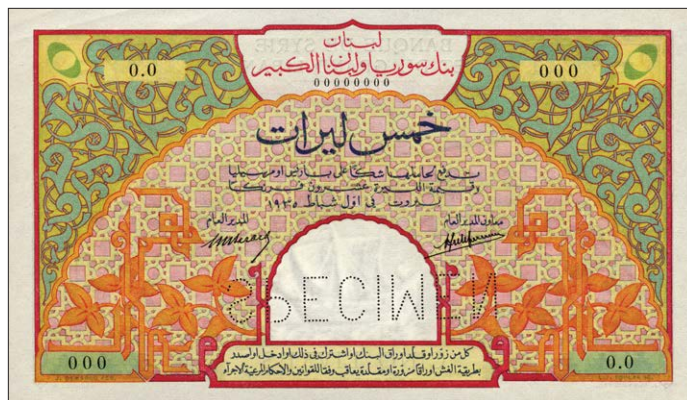 لبنان
بنك سوريا ولبنان الكبير
00000000
0.0
000
خمس ليرات
تدفع لحاملها شكا على باريس او مرسيليا
وقيمة الليرة عشرون فرنكا
بيروت في اول شباط ١٩٣٥
معاون المدير العام
المدير العام
SPECIMEN
000
0.0
كل من زور او قلد اوراق البنك او اشترك في ذلك او ادخل او اصدر
بطريقة الغش اوراقا مزورة او مقلدة يعاقب وفقا للقوانين والاحكام المرعية الاجراء